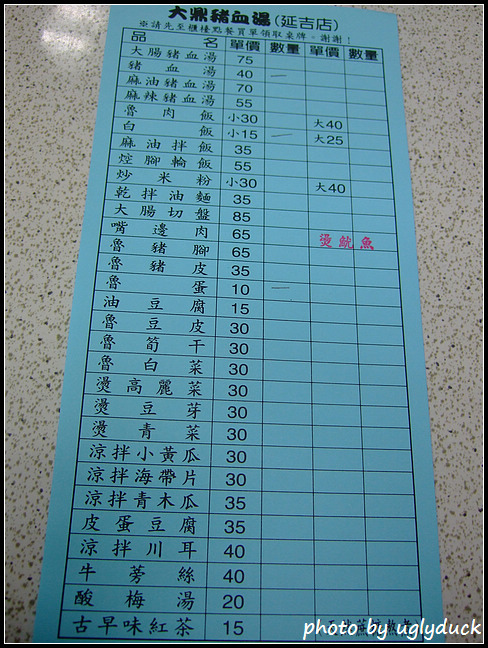 大鼎豬血湯(延吉店)
※請先至櫃檯點餐買單領取桌牌。謝謝！
品名 單價 數量 單價 數量
大腸豬血湯 75
豬血湯 40 一
麻油豬血湯 70
麻辣豬血湯 55
魯肉飯 小30 大40
白飯 小15 一 大25
麻油拌飯 35
焢腳輪飯 55
炒米粉 小30 大40
乾拌油麵 35
大腸切盤 85
嘴邊肉 65 燙魷魚
魯豬腳 65
魯豬皮 35
魯蛋 10 一
油豆腐 15
魯豆皮 30
魯筍干 30
魯白菜 30
燙高麗菜 30
燙豆芽 30
燙青菜 30
涼拌小黃瓜 30
涼拌海帶片 30
涼拌青木瓜 35
皮蛋豆腐 35
涼拌川耳 40
牛蒡絲 40
酸梅湯 20
古早味紅茶 15
photo by uglyduck